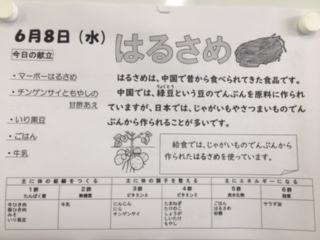 6月8日(水)
はるさめ
今日の献立
・マーボーはるさめ
・チンゲンサイともやしの
甘酢あえ
・いり黒豆
・ごはん
・牛乳
はるさめは、中国で昔から食べられてきた食品です。
中国では、緑豆という豆のでんぷんを原料に作られ
ていますが、日本では、じゃがいもやさつまいものでん
ぷんから作られることが多いです。
給食では、じゃがいものでんぷんから
作られたはるさめを使っています。
主に体の組織をつくる 主に体の調子を整える 主にエネルギーになる
1群 2群 3群 4群 5群 6群
たんぱく質 無機質 ビタミンA ビタミンC 炭水化物 脂質
牛ひき肉 牛乳 にんじん たまねぎ ごはん サラダ油
豚ひき肉 にら たけのこ はるさめ
みそ チンゲンサイ しょうが 砂糖
いり黒豆 しいたけ
もやし